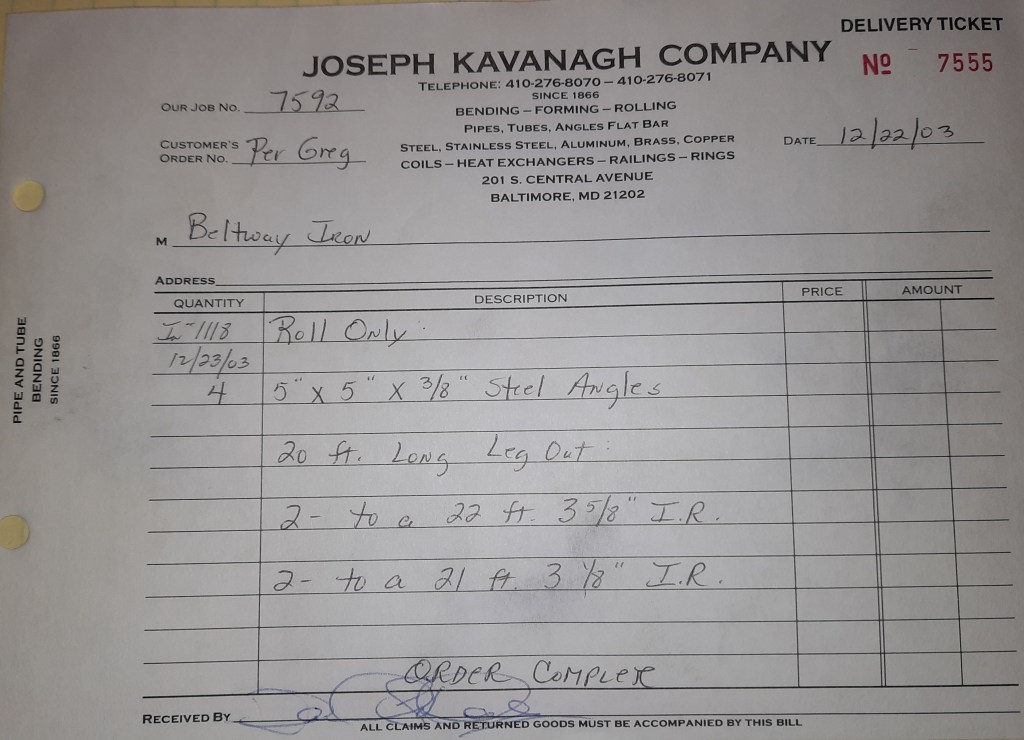 DELIVERY TICKET
JOSEPH KAVANAGH COMPANY
Nº 7555
TELEPHONE: 410-276-8070 – 410-276-8071
SINCE 1866
OUR JOB NO. 7592
BENDING – FORMING – ROLLING
PIPES, TUBES, ANGLES FLAT BAR
CUSTOMER'S
ORDER NO. Per Greg
STEEL, STAINLESS STEEL, ALUMINUM, BRASS, COPPER
DATE 12/22/03
COILS – HEAT EXCHANGERS – RAILINGS – RINGS
201 S. CENTRAL AVENUE
BALTIMORE, MD 21202
M Beltway Iron
ADDRESS
QUANTITY DESCRIPTION PRICE AMOUNT
In-1118 Roll Only:
12/23/03
4 5" X 5" X 3/8" Steel Angles
20 ft. Long Leg Out:
2- to a 22 ft. 3 5/8" I.R.
2- to a 21 ft. 3 1/8" I.R.
ORDER COMPLETE
RECEIVED BY
ALL CLAIMS AND RETURNED GOODS MUST BE ACCOMPANIED BY THIS BILL
PIPE AND TUBE
BENDING
SINCE 1866